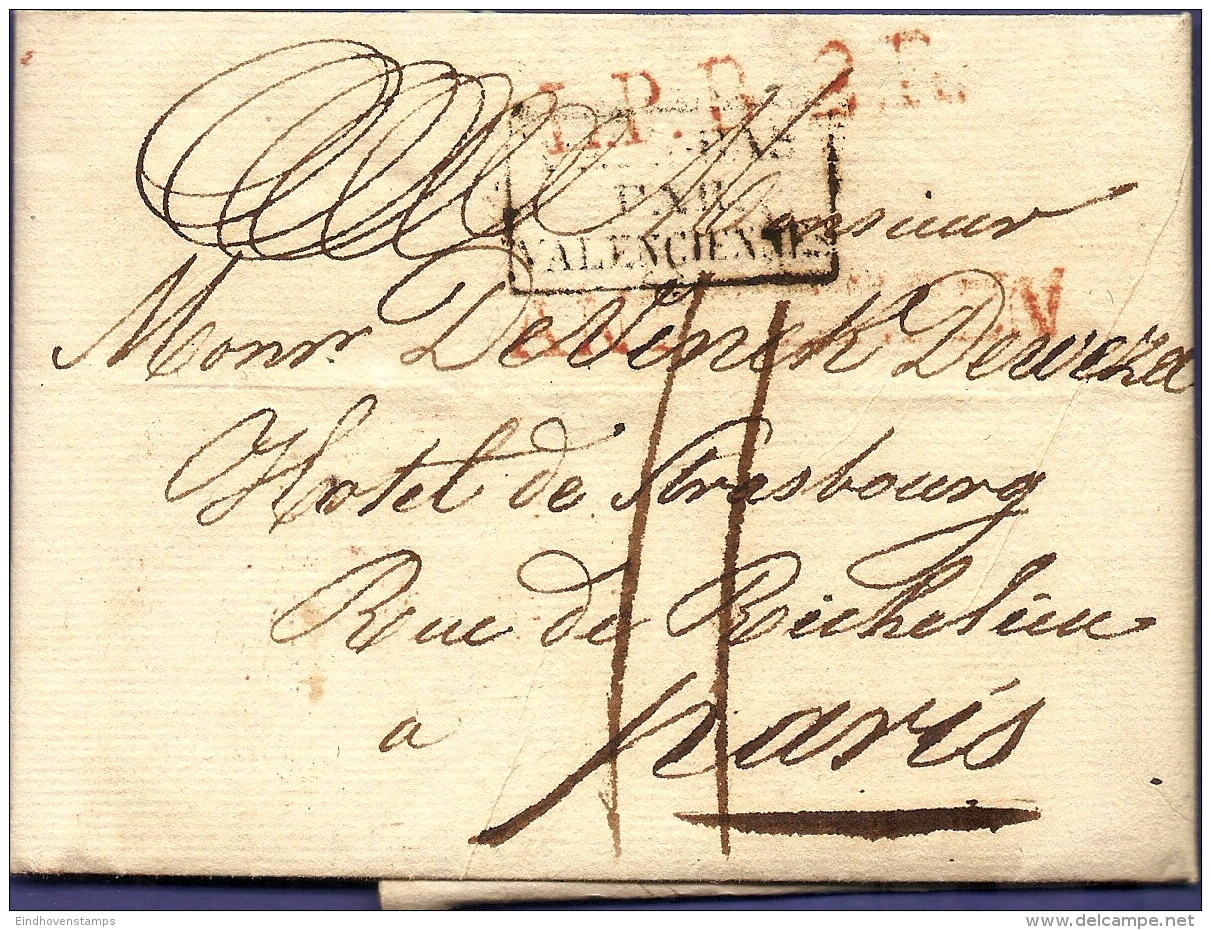 L.P.B.2.R.
PAR
VALENCIENNES
Monsieur
Monsr DeVinck Deweza
Hotel de Strasbourg
Rue de Richelieu
a paris
Eindhovenstamps
delcampe.net